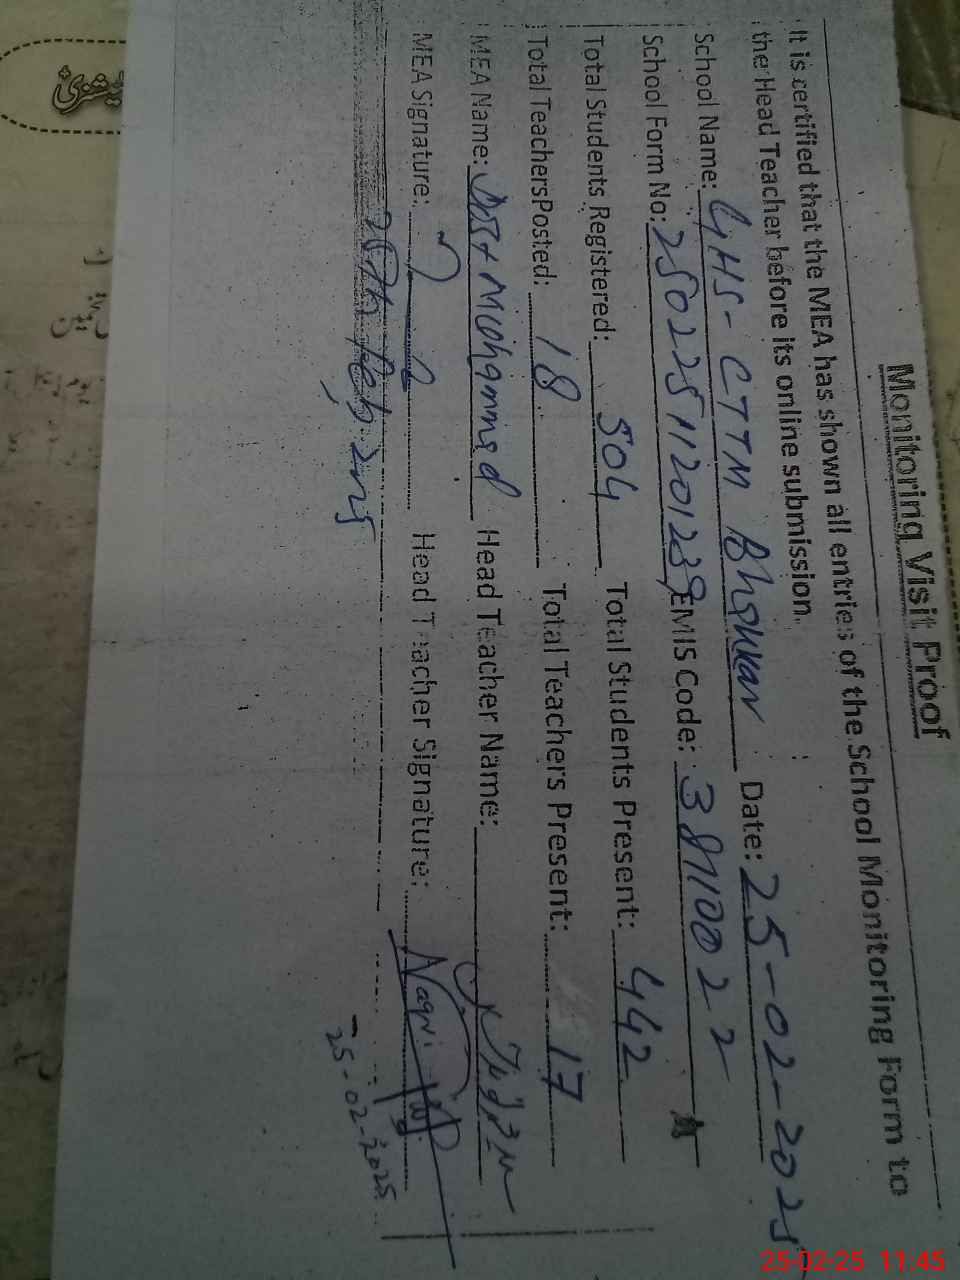 Monitoring Visit Proof
It is certified that the MEA has shown all entries of the School Monitoring Form to
the Head Teacher before its online submission.
School Name: GHS-CTTM Bhakkar Date: 25-02-2025
School Form No: EMIS Code:
Total Students Registered: 504 Total Students Present: 442
Total Teachers Posted: 18 Total Teachers Present: 17
MEA Name: Dost Mohammad Head Teacher Name:
MEA Signature: Head Teacher Signature: Naqvi
25th Feb, 2025
25-02-2025
25-02-25 11:45